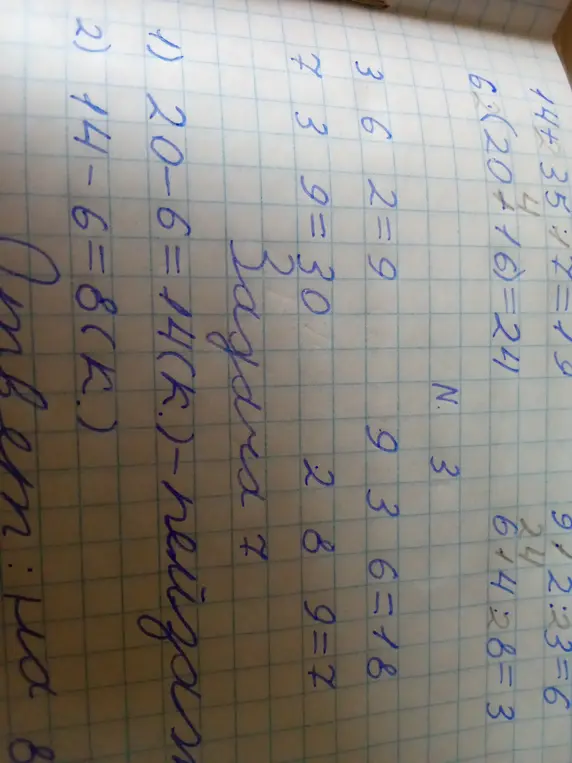 14+35:7=19 9·2:3=6
6:(20+16)=24 6·4:8=3
N. 3
3 6 2=9 9 3 6=18
7 3 9=30 2 8 9=7
Задача 7
1) 20-6=14(к.)-
2) 14-6=8(к.)
Ответ: на 8